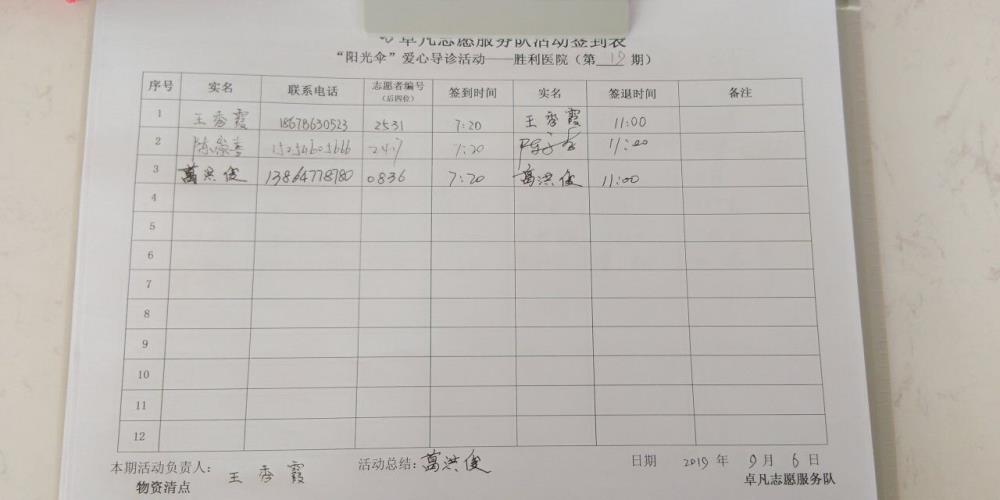 卓凡志愿服务队活动签到表
“阳光伞”爱心导诊活动——胜利医院（第 19 期）
序号 实名 联系电话 志愿者编号（后四位） 签到时间 实名 签退时间 备注
1 王秀霞 18678630523 2531 7:20 王秀霞 11:00
2 7:20 11:00
3 葛洪俊 13864778780 0836 7:20 葛洪俊 11:00
4
5
6
7
8
9
10
11
12
本期活动负责人： 王秀霞 活动总结：葛洪俊 日期 2019 年 9 月 6 日
物资清点 卓凡志愿服务队